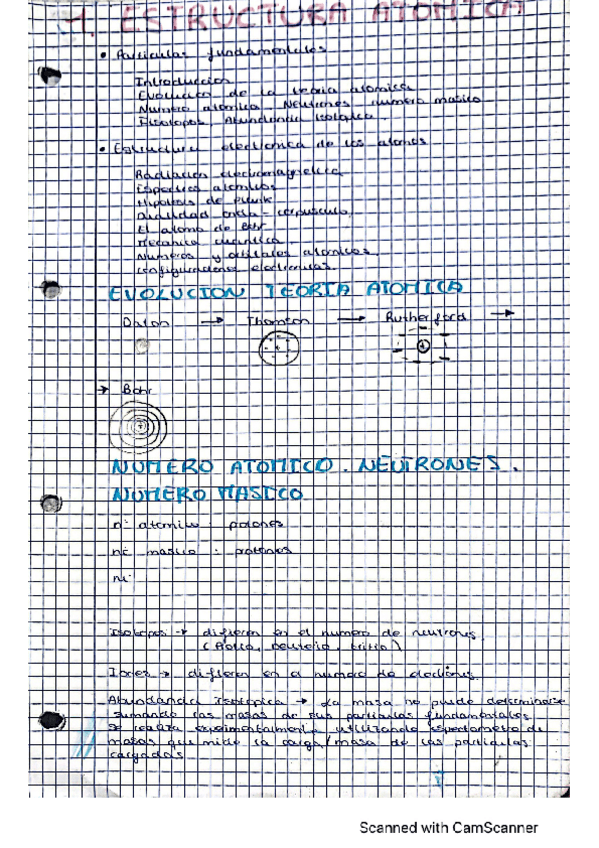 1. ESTRUCTURA ATOMICA
• Particulas fundamentales
Introduccion
Evolucion de la teoria atomica
Numero atomico. Neutrones. numero masico
Isotopos. Abundancia isotopica.
• Estructura electronica de los atomos
Radiacion electromagnetica
Espectros atomicos
Hipotesis de Planck
Dualidad onda - corpusculo
El atomo de Bohr
Mecanica cuantica.
Numeros y orbitales atomicos.
configuraciones electronicas.
EVOLUCION TEORIA ATOMICA
Dalton → Thomson → Rutherford →
→ Bohr
NUMERO ATOMICO. NEUTRONES.
NUMERO MASICO
nº atomico : protones
nº masico : protones
nº
Isotopos → difieren en el numero de neutrones.
(Protio, Deuterio, tritio)
Iones → difieren en el numero de electrones.
Abundancia isotopica → La masa no puede determinarse
sumando las masas de sus particulas fundamentales.
Se realiza experimentalmente utilizando espectometro de
masas que mide la carga/masa de las particulas
cargadas
Scanned with CamScanner